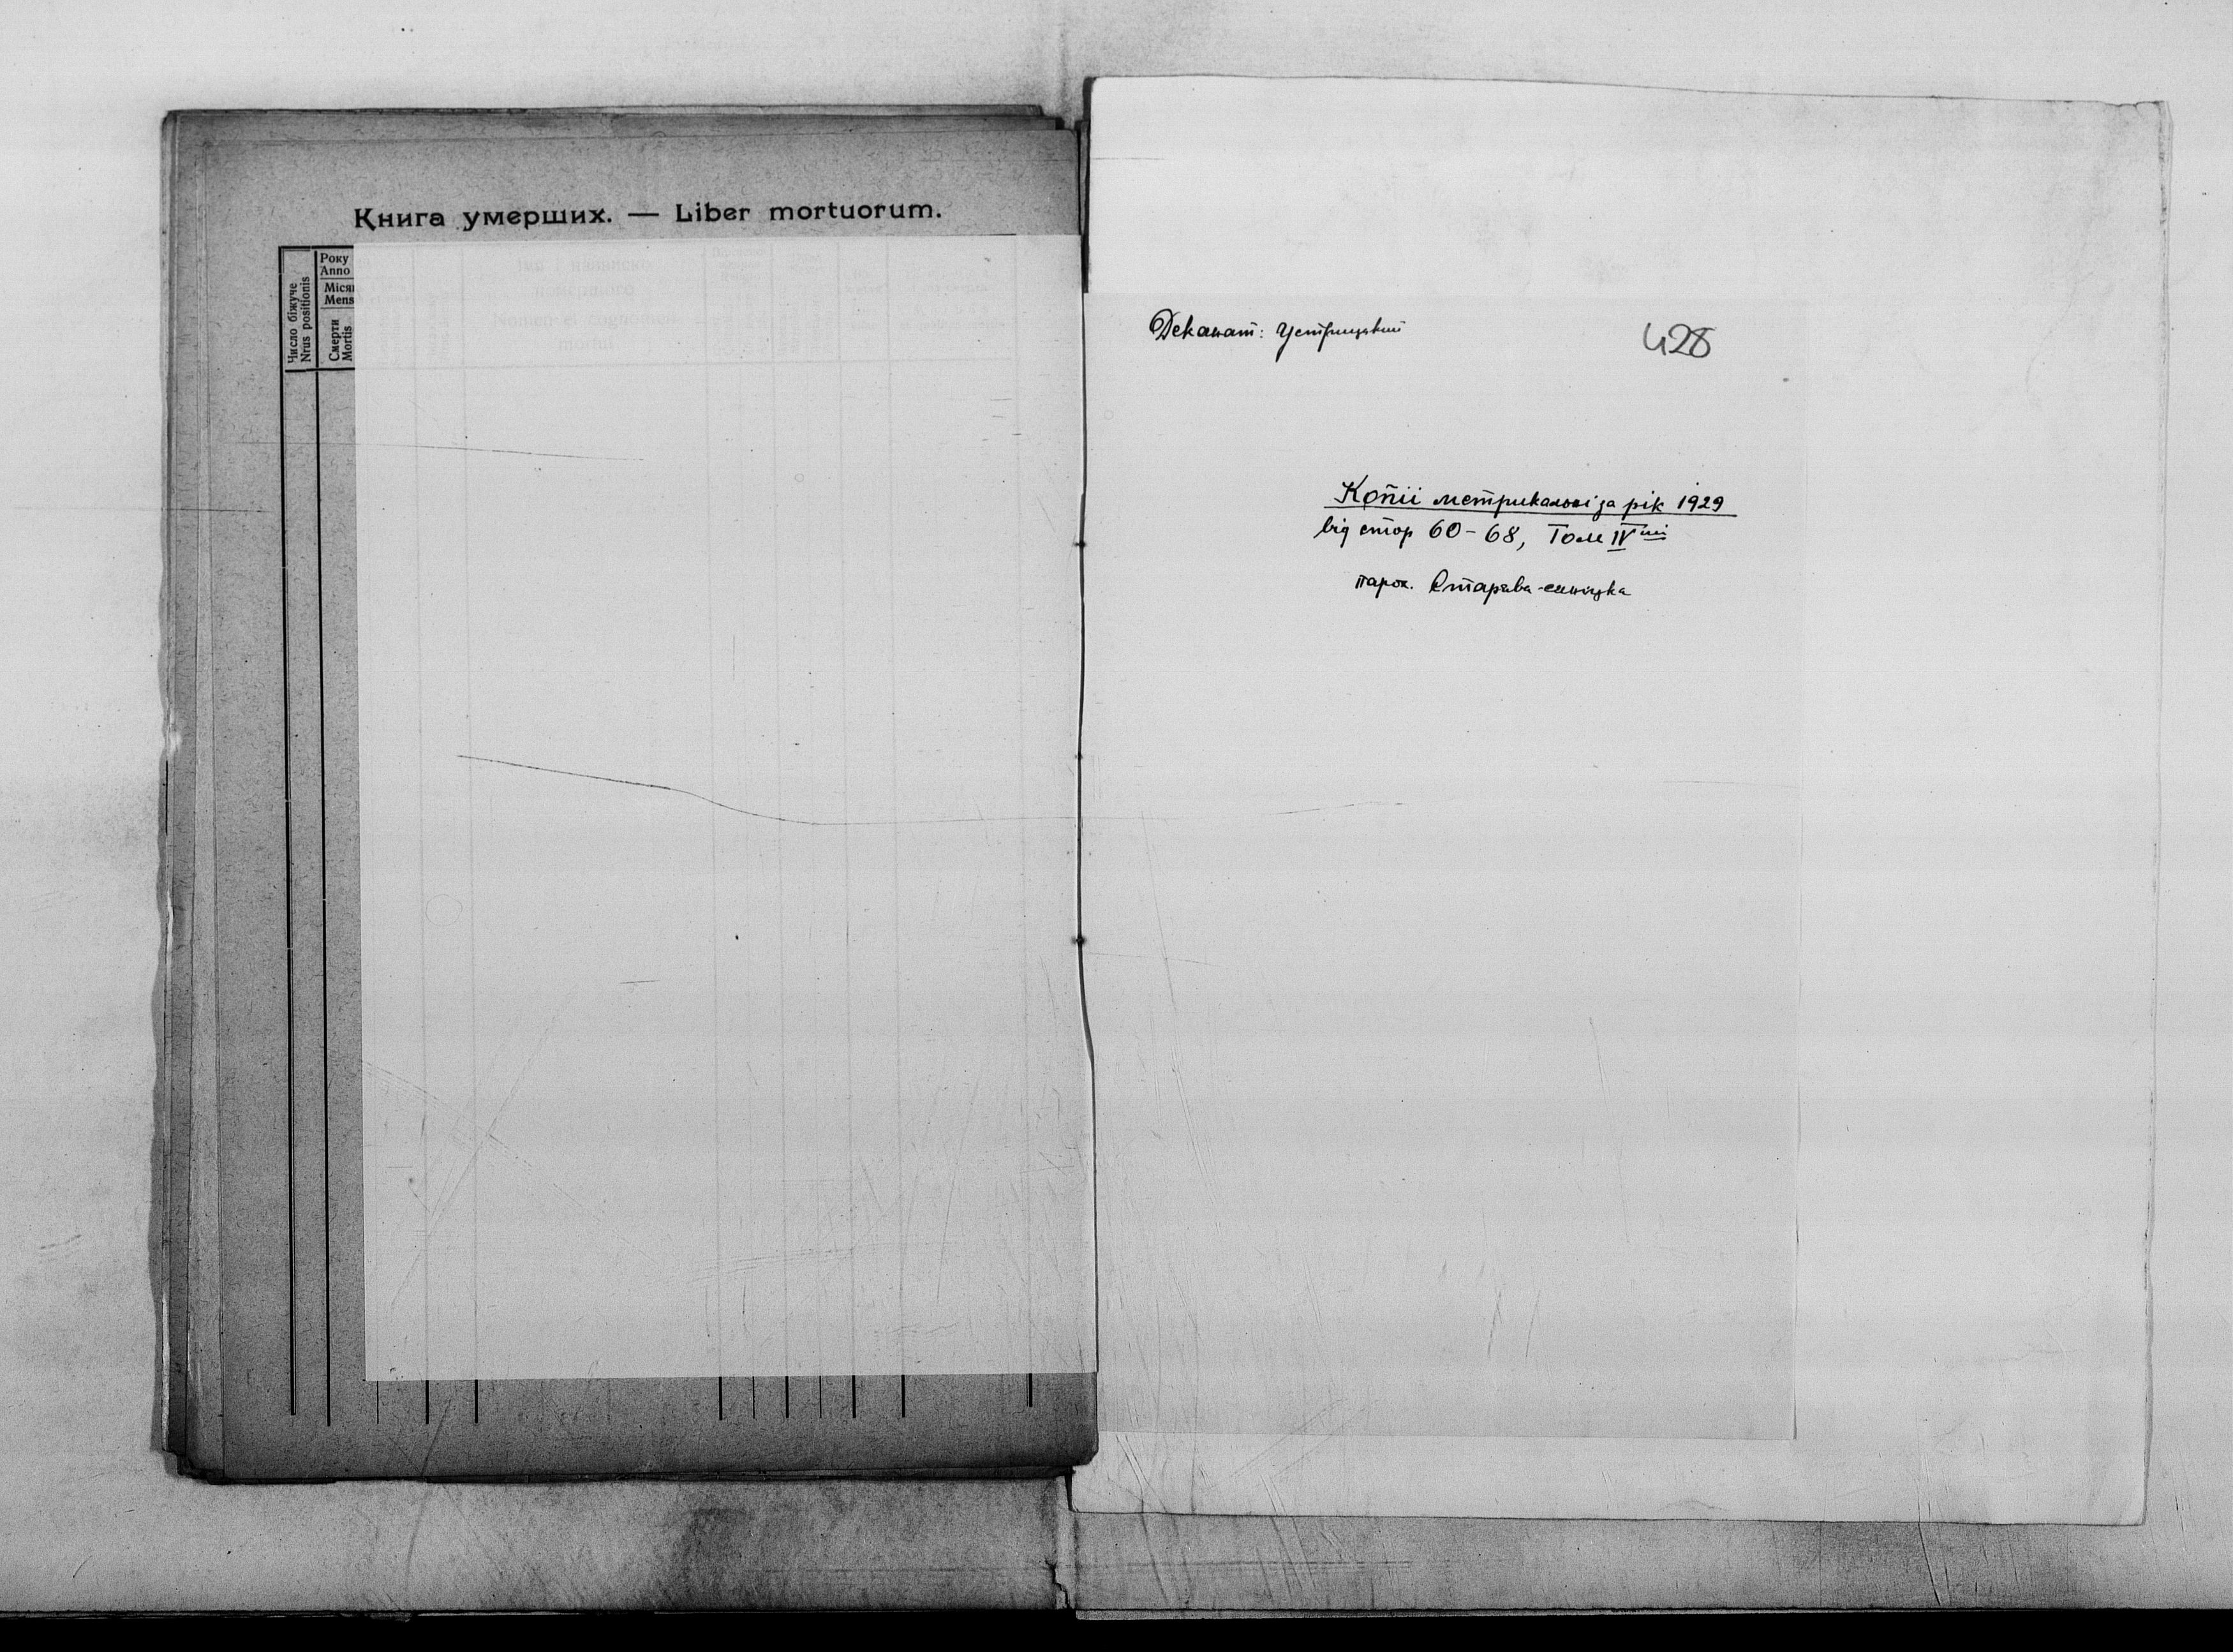 Книга умерших. — Liber mortuorum.
Число біжуче
Nrus positionis
Року
Anno
Міся
Mens
Смерти
Mortis
Імя і назвиско
помершого
Nomen et cognomen
mortui
Деканат: Устрицький
428
Копії метрикальні за рік 1929
від стор 60-68, Том IV
парох. Старява